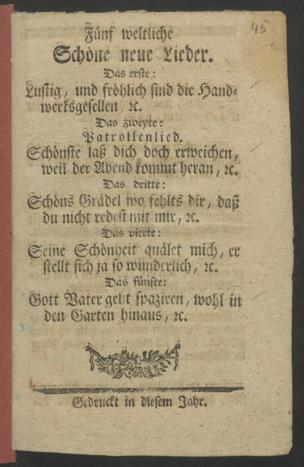 45
Fünf weltliche
Schöne neue Lieder.
Das erste:
Lustig, und fröhlich sind die Hand-
werksgesellen, ꝛc.
Das zweyte:
Patrollenlied.
Schönste laß dich doch erweichen,
weil der Abend kommt heran, ꝛc.
Das dritte:
Schöns Grädel wo fehlts dir, daß
du nicht redest mit mir, ꝛc.
Das vierte:
Seine Schönheit quälet mich, er
stellt sich ja so wunderlich, ꝛc.
Das fünfte:
Gott Vater geht spaziren, wohl in
den Garten hinaus, ꝛc.
Gedruckt in diesem Jahr.